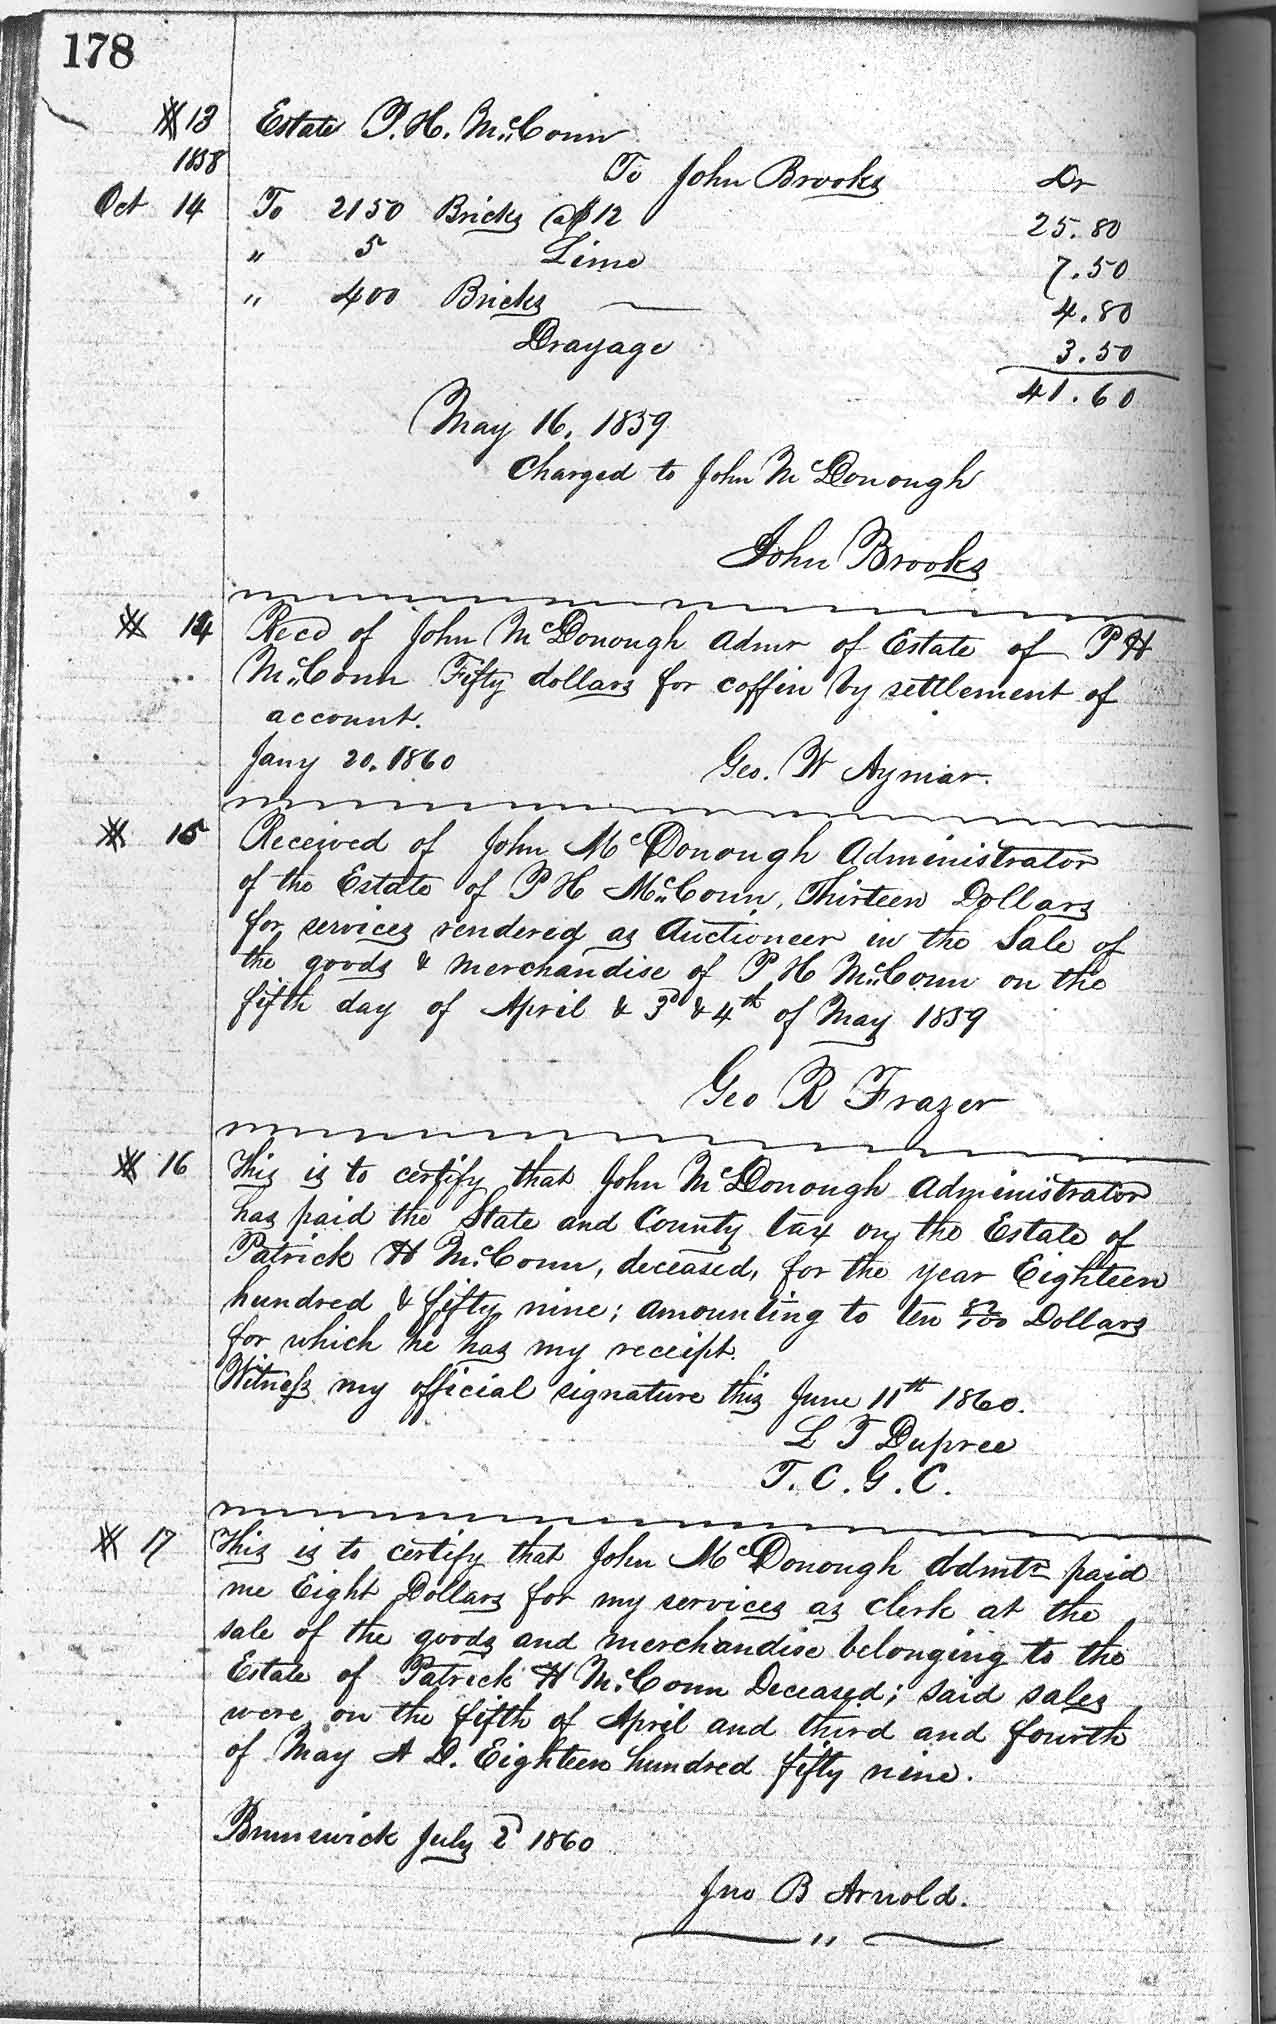 178
# 13 Estate P. H. McConn
1858 To John Brooks Dr
Oct 14 To 2150 Bricks @ $12 25.80
" 5 Lime 7.50
" 400 Bricks — 4.80
Drayage 3.50
41.60
May 16, 1859
Charged to John McDonough
John Brooks
# 14 Recd of John McDonough Admr of Estate of P H
McConn Fifty dollars for coffin by settlement of
account.
Jany 20. 1860 Geo. W Aymar.
# 15 Received of John McDonough Administrator
of the Estate of P H McConn, Thirteen Dollars
for services rendered as Auctioneer in the Sale of
the goods & merchandise of P H McConn on the
fifth day of April & 3d & 4th of May 1859
Geo R Frazer
# 16 This is to certify that John McDonough Administrator
has paid the State and County tax on the Estate of
Patrick H McConn, deceased, for the year Eighteen
hundred & fifty nine; amounting to ten 82/100 Dollars
for which he has my receipt.
Witness my official signature this June 11th 1860.
L T Dupree
T. C. G. C.
# 17 This is to certify that John McDonough Admtr paid
me Eight Dollars for my services as clerk at the
sale of the goods and merchandise belonging to the
Estate of Patrick H McConn Deceased; said sales
were on the fifth of April and third and fourth
of May A D. Eighteen hundred fifty nine.
Brunswick July 2d 1860
Jno B Arnold.
"